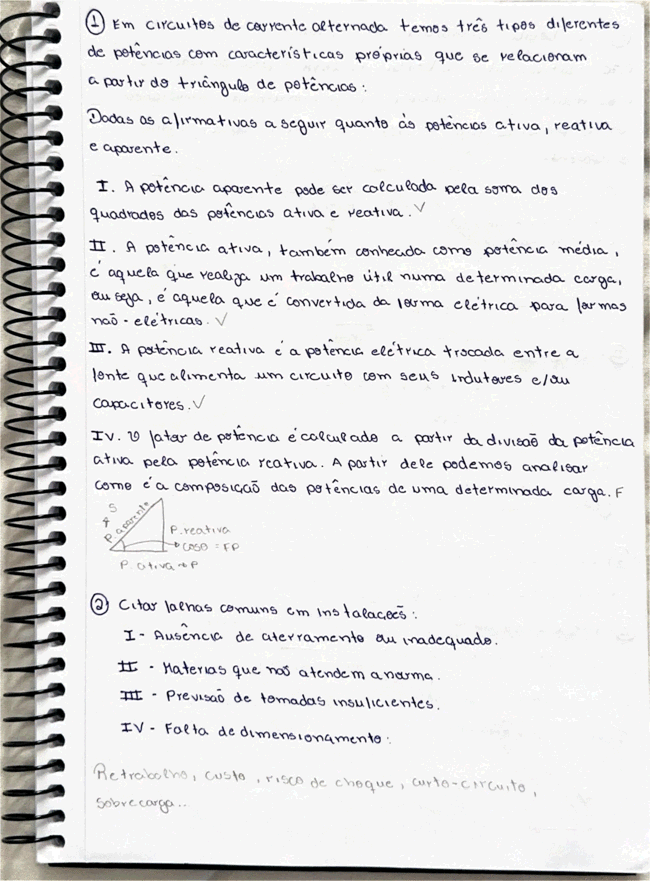 ① Em circuitos de corrente alternada temos três tipos diferentes
de potências com características próprias que se relacionam
a partir do triângulo de potências:
Dadas as afirmativas a seguir quanto às potências ativa, reativa
e aparente.
I. A potência aparente pode ser calculada pela soma dos
quadrados das potências ativa e reativa. ✓
II. A potência ativa, também conhecada como potência média,
é aquela que realiza um trabalho útil numa determinada carga,
ou seja, é aquela que é convertida da forma elétrica para formas
não-elétricas. ✓
III. A potência reativa é a potência elétrica trocada entre a
fonte que alimenta um circuito com seus indutores e/ou
capacitores. ✓
IV. O fator de potência é calculado a partir da divisão da potência
ativa pela potência reativa. A partir dele podemos analisar
como é a composição das potências de uma determinada carga. F
S
P. aparente
P. reativa
→ cosθ = FP
P. ativa → P
② Citar falhas comuns em instalações:
I - Ausência de aterramento ou inadequado.
II - Materias que nos atendem a norma.
III - Previsão de tomadas insuficientes.
IV - Falta de dimensionamento:
Retrabalho, custo, risco de choque, curto-circuito,
sobrecarga...